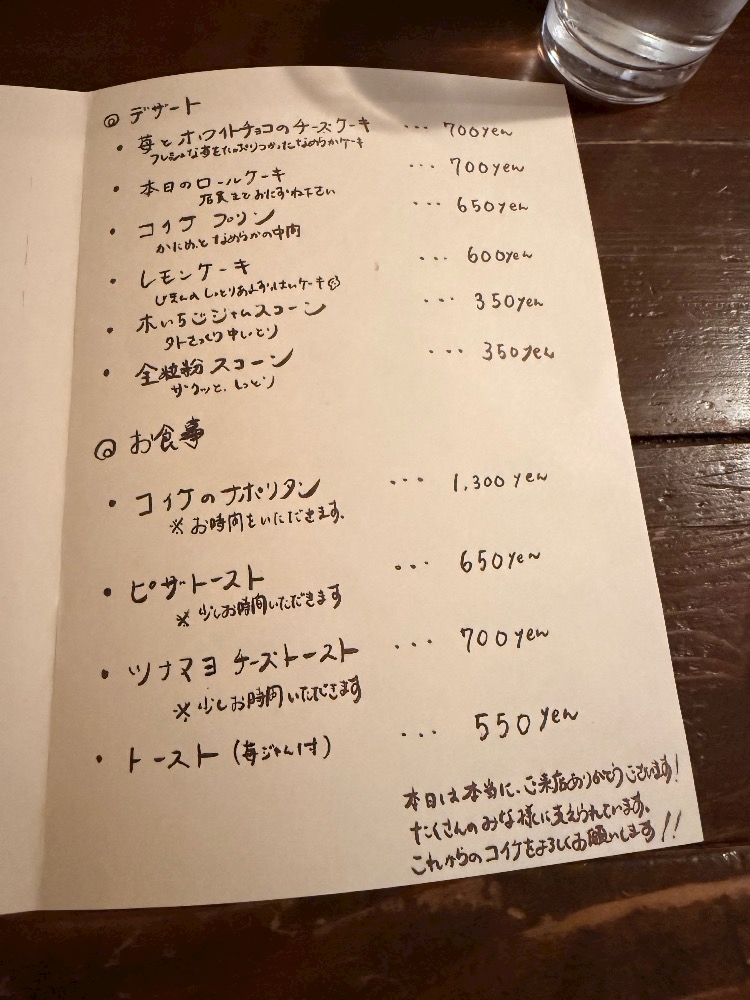 ◎ デザート
・ 苺とホワイトチョコのチーズケーキ ・・・ 700yen
フレッシュな苺をたっぷりつかったなめらかケーキ
・ 本日のロールケーキ ・・・ 700yen
店員までおたずね下さい
・ コイケ プリン ・・・ 650yen
かためとなめらかの中間
・ レモンケーキ ・・・ 600yen
じまんのしっとりあまずっぱいケーキ
・ 木いちごジャムスコーン ・・・ 350yen
外さっくり中しっとり
・ 全粒粉スコーン ・・・ 350yen
ザクッと、しっとり
◎ お食事
・ コイケのナポリタン ・・・ 1,300yen
※ お時間をいただきます。
・ ピザトースト ・・・ 650yen
※ 少しお時間いただきます
・ ツナマヨ チーズトースト ・・・ 700yen
※ 少しお時間いただきます
・ トースト (苺じゃん付) ・・・ 550yen
本日は本当に、ご来店ありがとうございます!
たくさんのみな様に支えられています。
これからのコイケをよろしくお願いします!!